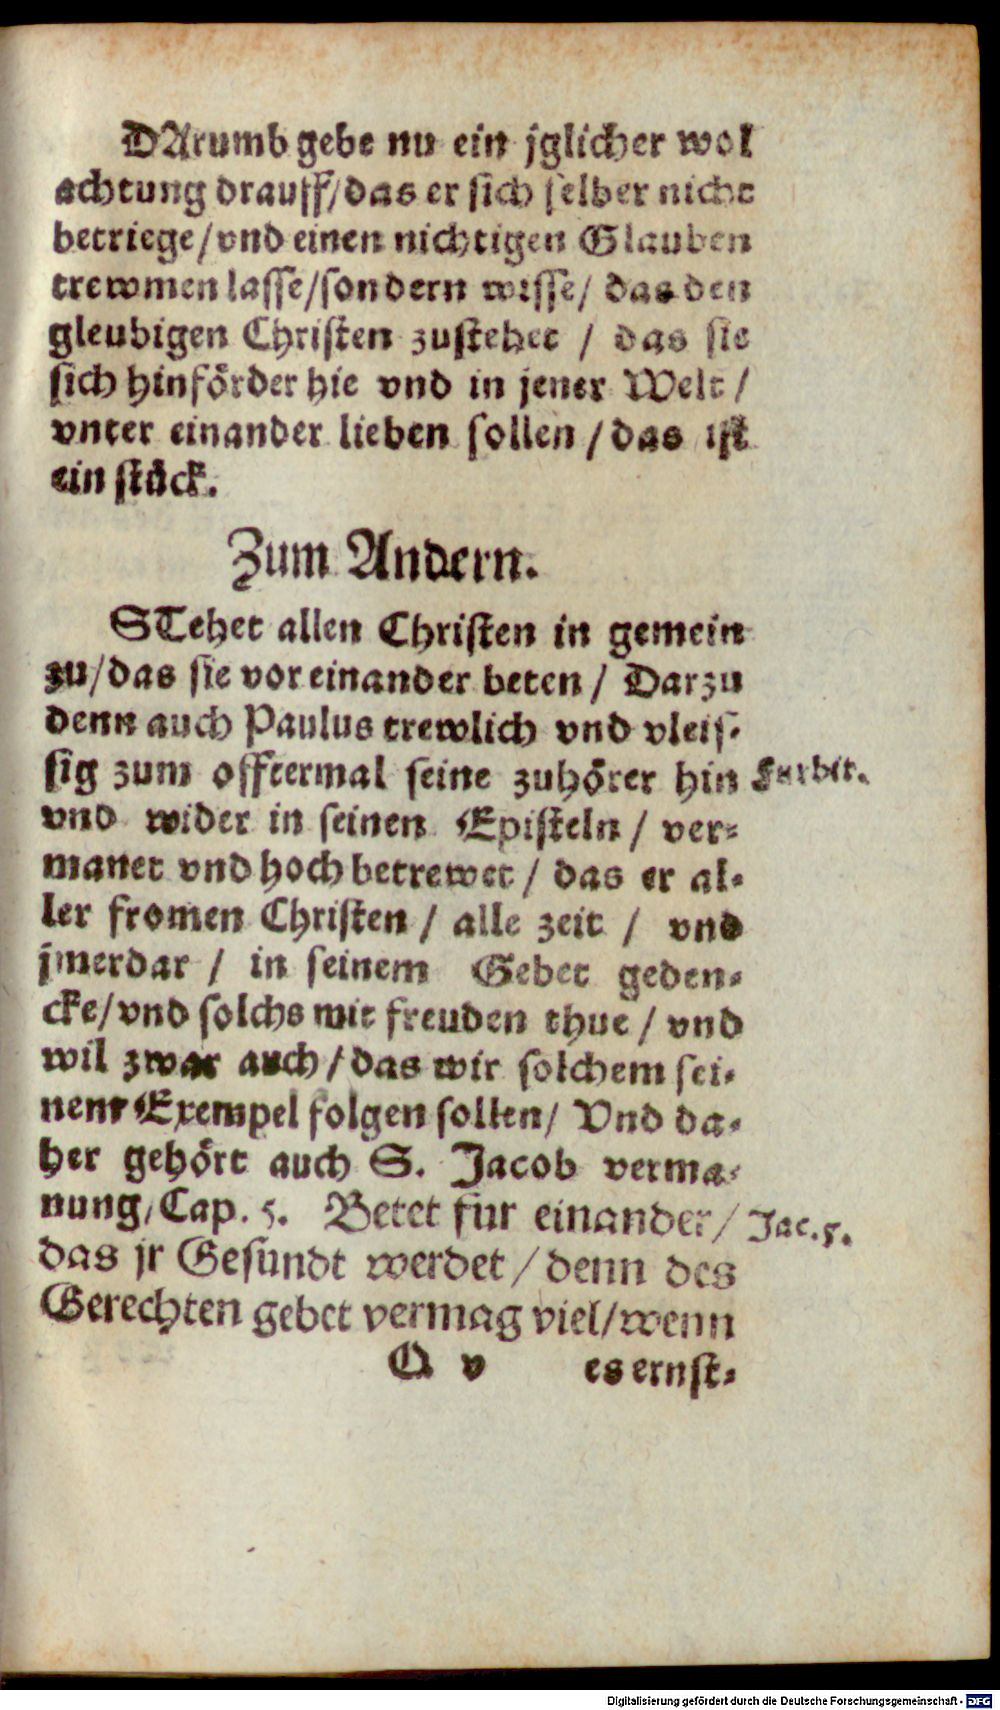 DArumb gebe nu ein jglicher wol
achtung drauff/das er sich selber nicht
betriege/vnd einen nichtigen Glauben
trewmen lasse/sondern wisse/ das den
gleubigen Christen zustehet / das sie
sich hinförder hie vnd in jener Welt /
vnter einander lieben sollen / das ist
ein stück.
Zum Andern.
STehet allen Christen in gemein
zu/das sie vor einander beten / Darzu
denn auch Paulus trewlich vnd vleis-
sig zum offtermal seine zuhörer hin
Furbit.
vnd wider in seinen Episteln / ver-
manet vnd hoch betrewet / das er al-
ler fromen Christen / alle zeit / vnd
jmerdar / in seinem Gebet geden-
cke/vnd solchs mit freuden thue / vnd
wil zwar auch / das wir solchem sei-
nem Exempel folgen sollen/ Vnd da-
her gehört auch S. Jacob verma-
nung, Cap. 5. Betet für einander/
Jac. 5.
das jr Gesundt werdet / denn des
Gerechten gebet vermag viel/wenn
Q v es ernst-
Digitalisierung gefördert durch die Deutsche Forschungsgemeinschaft - DFG